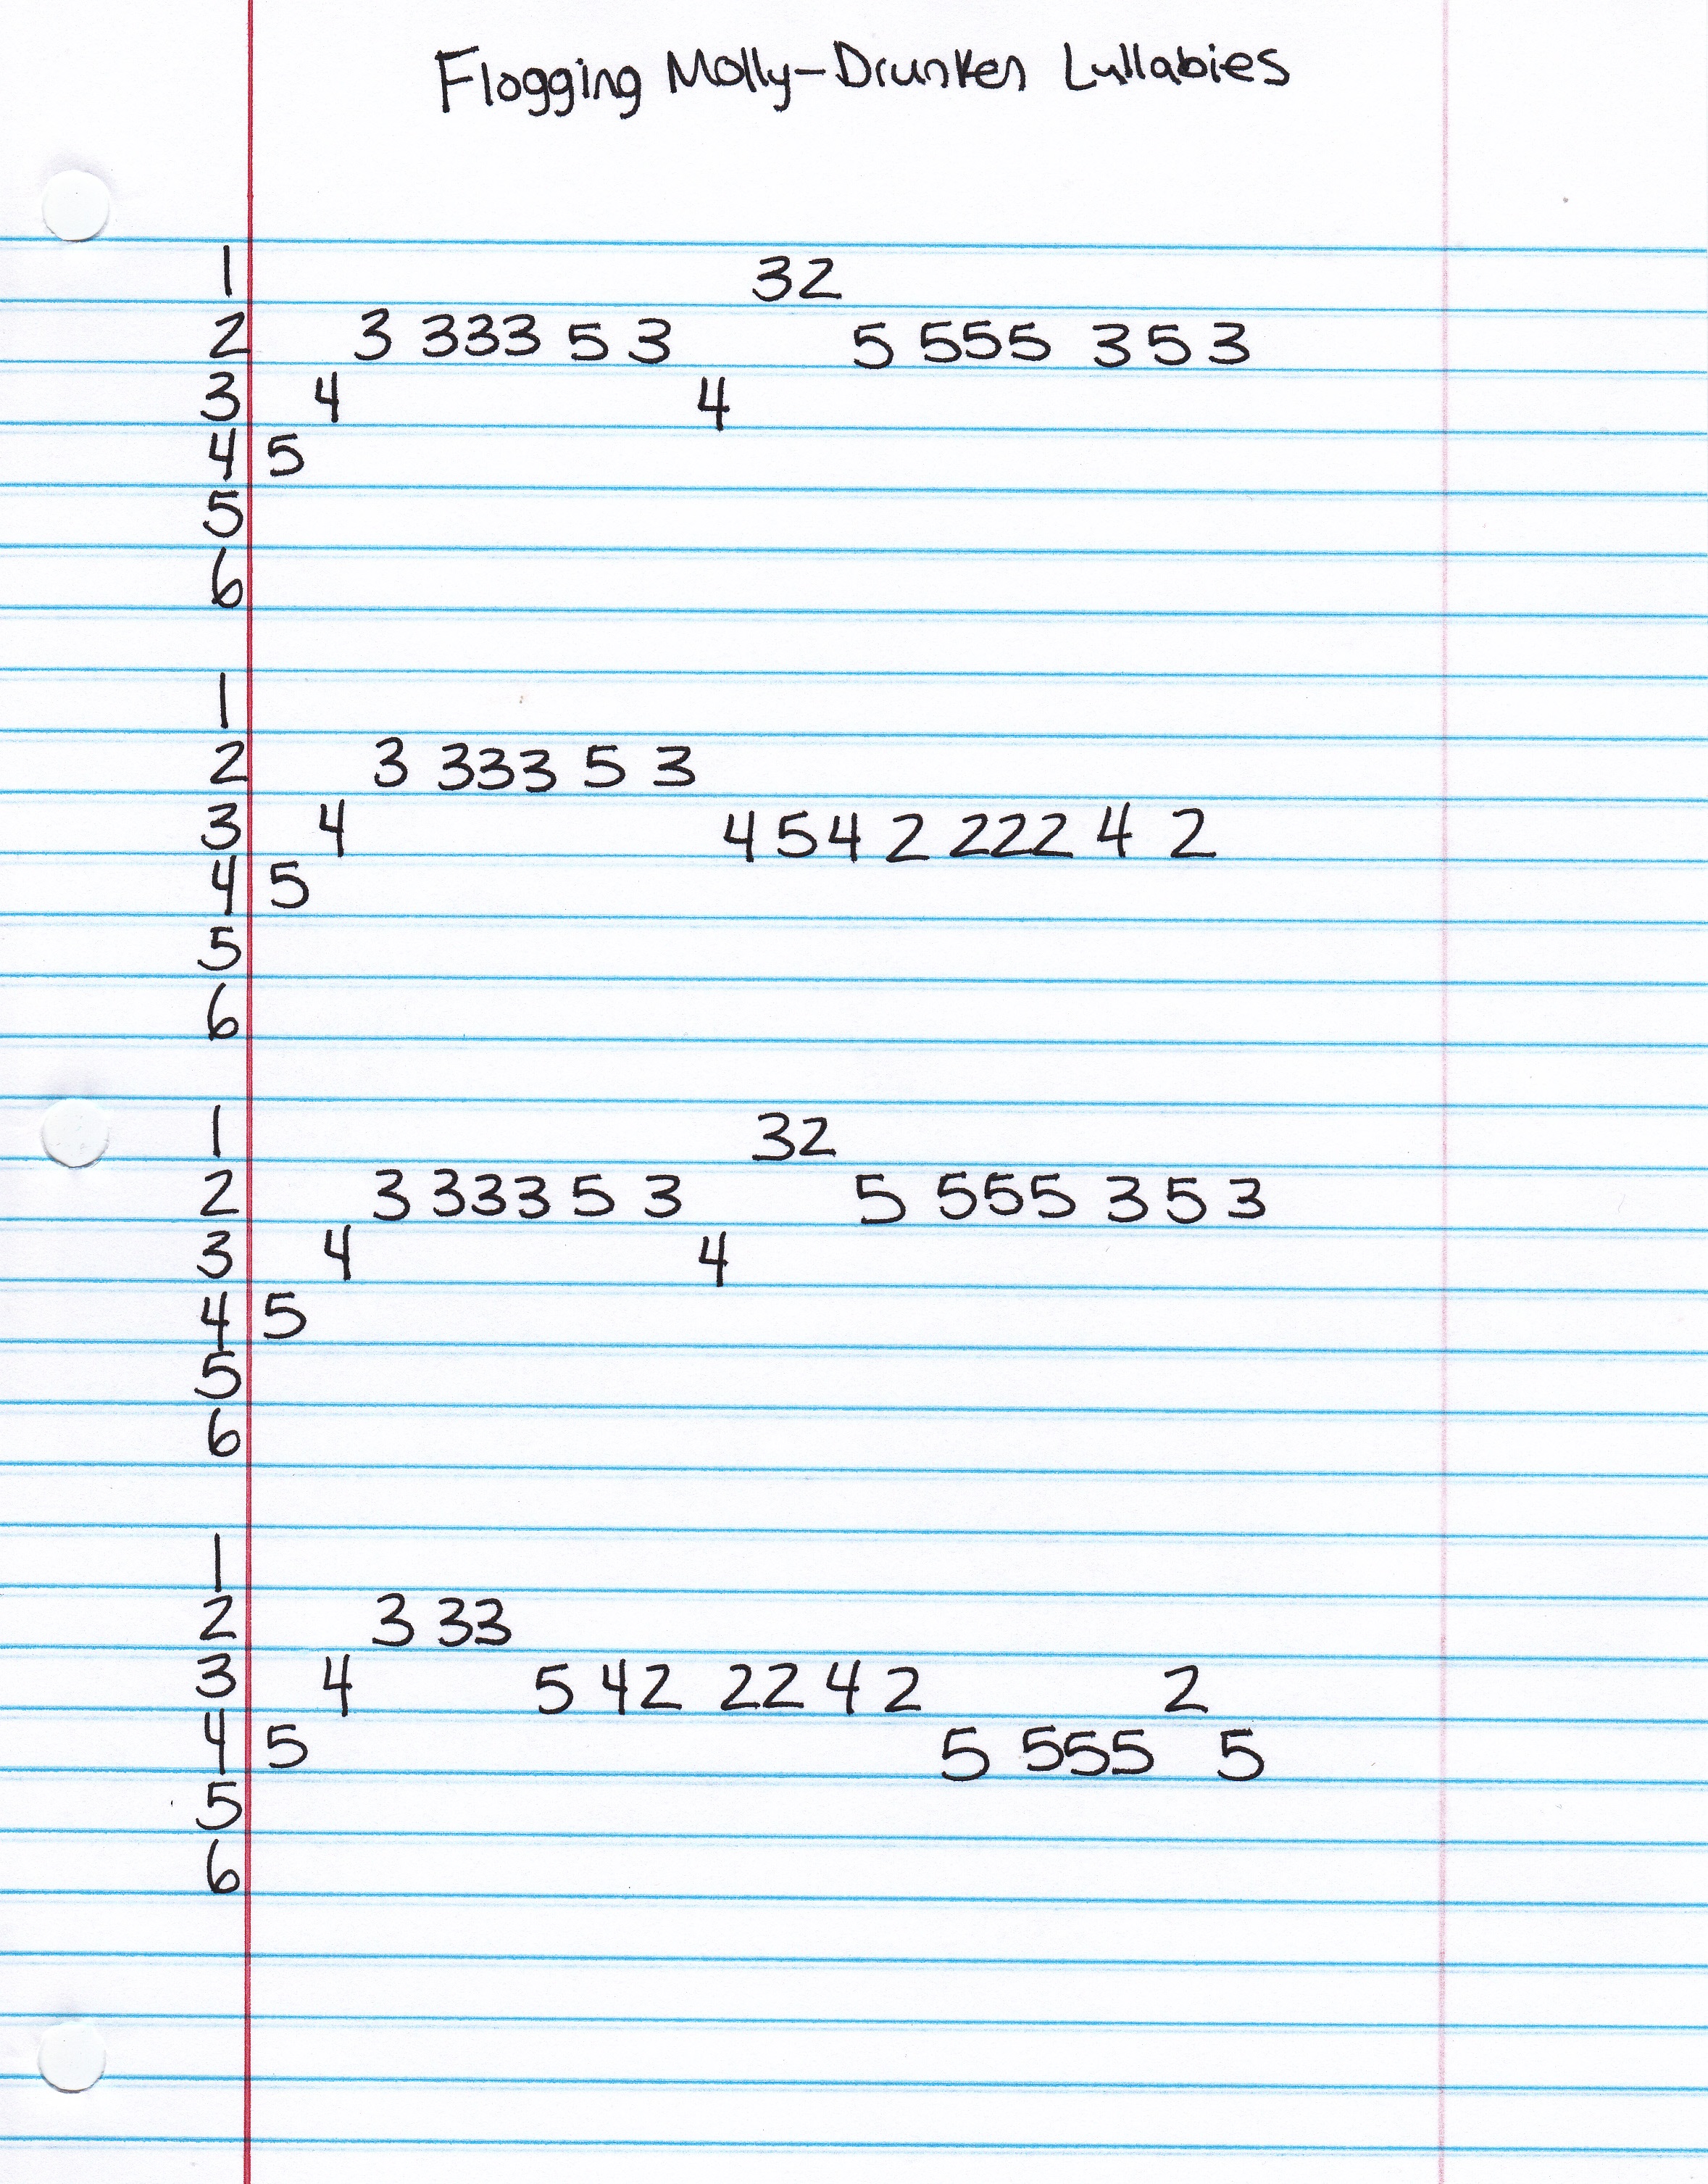 Flogging Molly-Drunken Lullabies
1 32
2 3 333 5 3 5 555 3 5 3
3 4 4
4 5
5
6
1
2 3 333 5 3
3 4 4 5 4 2 222 4 2
4 5
5
6
1 32
2 3 333 5 3 5 555 3 5 3
3 4 4
4 5
5
6
1
2 3 33
3 4 5 42 22 4 2 2
4 5 5 555 5
5
6